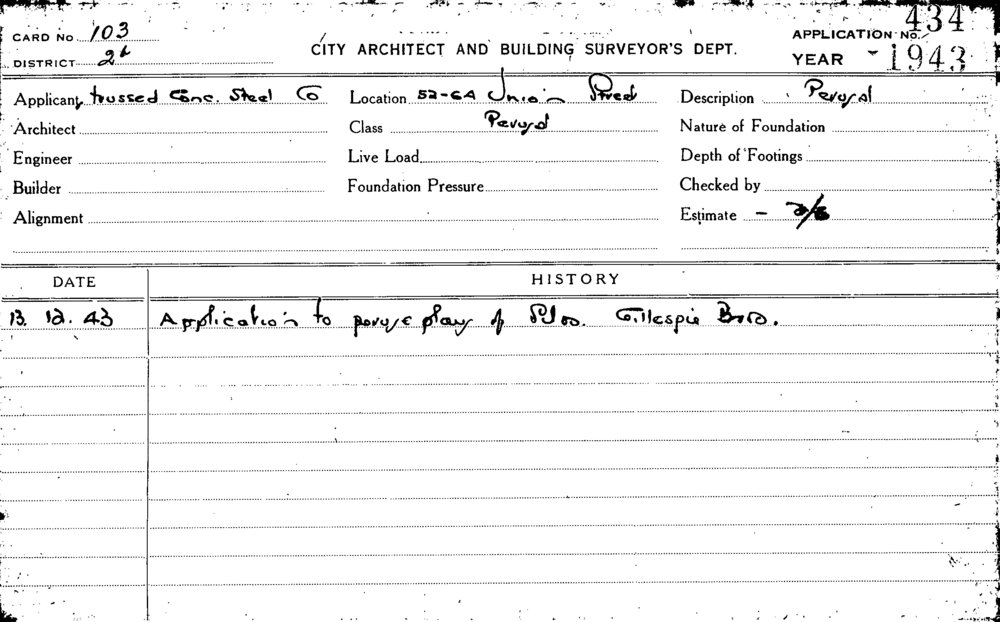 CARD No 103 APPLICATION No. 434
DISTRICT 2b CITY ARCHITECT AND BUILDING SURVEYOR'S DEPT. YEAR - 1943
Applicant trussed Conc. Steel Co Location 52-64 Union Street Description Perusal
Architect Class Perusal Nature of Foundation
Engineer Live Load Depth of Footings
Builder Foundation Pressure Checked by
Alignment Estimate - 2/6
DATE HISTORY
13. 12. 43 Application to peruse plans of Gillespie Bros.